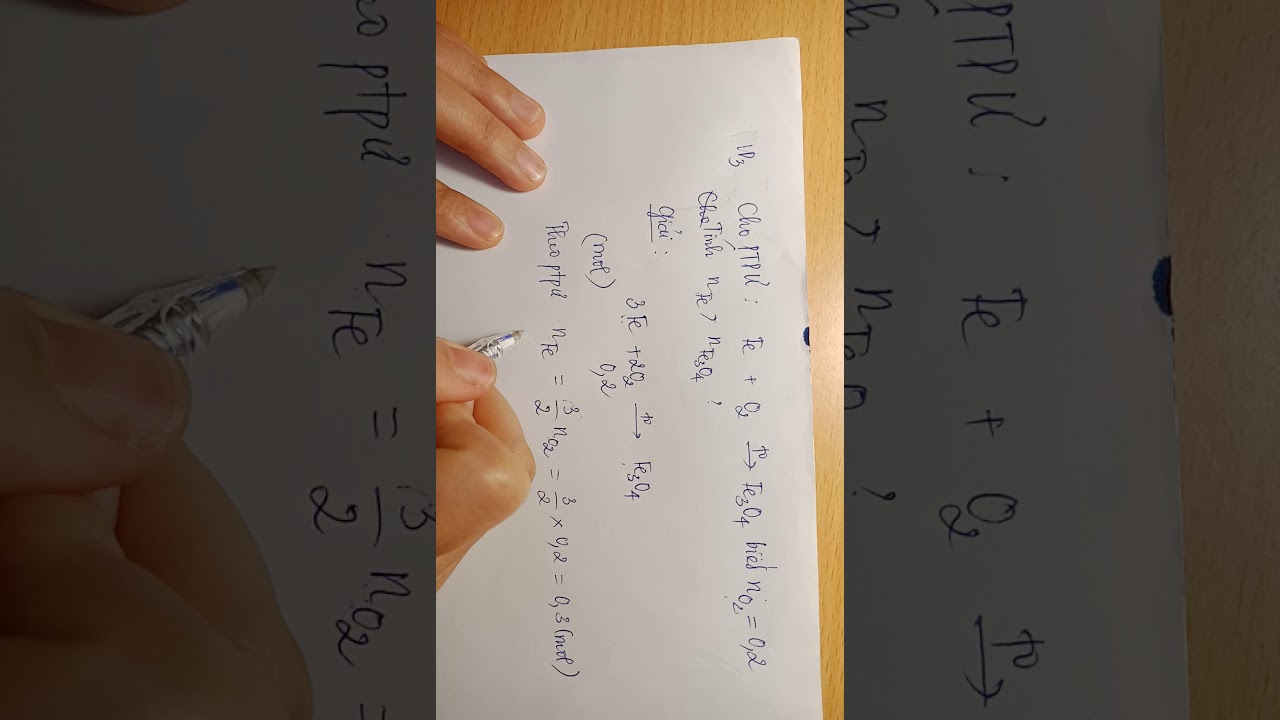 VD3 Cho PTPƯ: Fe + O₂ —t°→ Fe₃O₄ biết nO₂ = 0,2
Tính nFe, nFe₃O₄?
Giải:
3Fe + 2O₂ —t°→ Fe₃O₄
(mol) 0,2
Theo ptpư nFe = 3/2 nO₂ = 3/2 × 0,2 = 0,3 (mol)